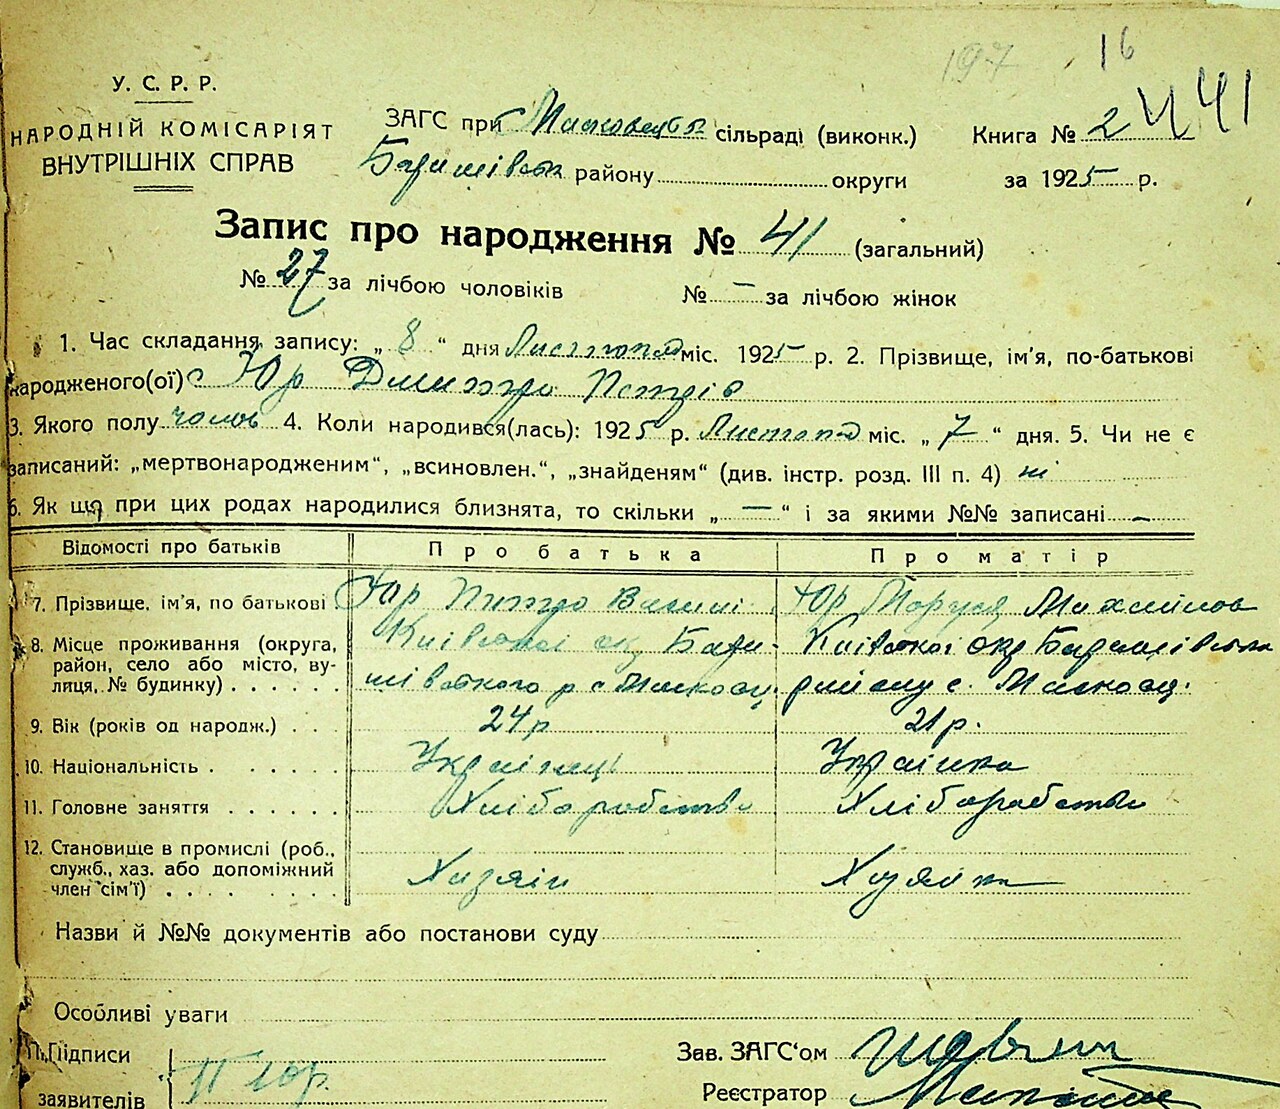 197 16
У. С. Р. Р.
НАРОДНІЙ КОМІСАРІЯТ
ВНУТРІШНІХ СПРАВ
ЗАГС при сільраді (виконк.)
району округи
Книга № 2 441
за 1925 р.
Запис про народження № 41 (загальний)
№ 27 за лічбою чоловіків № — за лічбою жінок
1. Час складання запису: „ 8 “ дня Листопад міс. 1925 р. 2. Прізвище, ім'я, по-батькові
народженого(ої) Юр Дмитро Петрів
3. Якого полу чолов 4. Коли народився(лась): 1925 р. Листопад міс. „ 7 “ дня. 5. Чи не є
записаний: „мертвонародженим“, „всиновлен.“, „знайденям“ (див. інстр. розд. III п. 4) ні
6. Як що при цих родах народилися близнята, то скільки „ — “ і за якими №№ записані —
Відомості про батьків Про батька Про матір
7. Прізвище, ім'я, по батькові Юр Петро Васил. Юр Маруся Михайлов
8. Місце проживання (округа, Київської окр Бари- Київської окр Баришівськ
район, село або місто, ву-
лиця, № будинку) . . . . . . шівського р с Масковц. району с. Масковц.
9. Вік (років од народж.) . . . 24 р 21 р.
10. Національність . . . . . . Українець Українка
11. Головне заняття . . . . . . Хліборобство Хліборобство
12. Становище в промислі (роб.,
служб., хаз. або допоміжний Хазяїн Хазяйка
член сім'ї) . . . . . . .
Назви й №№ документів або постанови суду
Особливі уваги
Підписи
заявителів П Юр.
Зав. ЗАГС'ом
Реєстратор